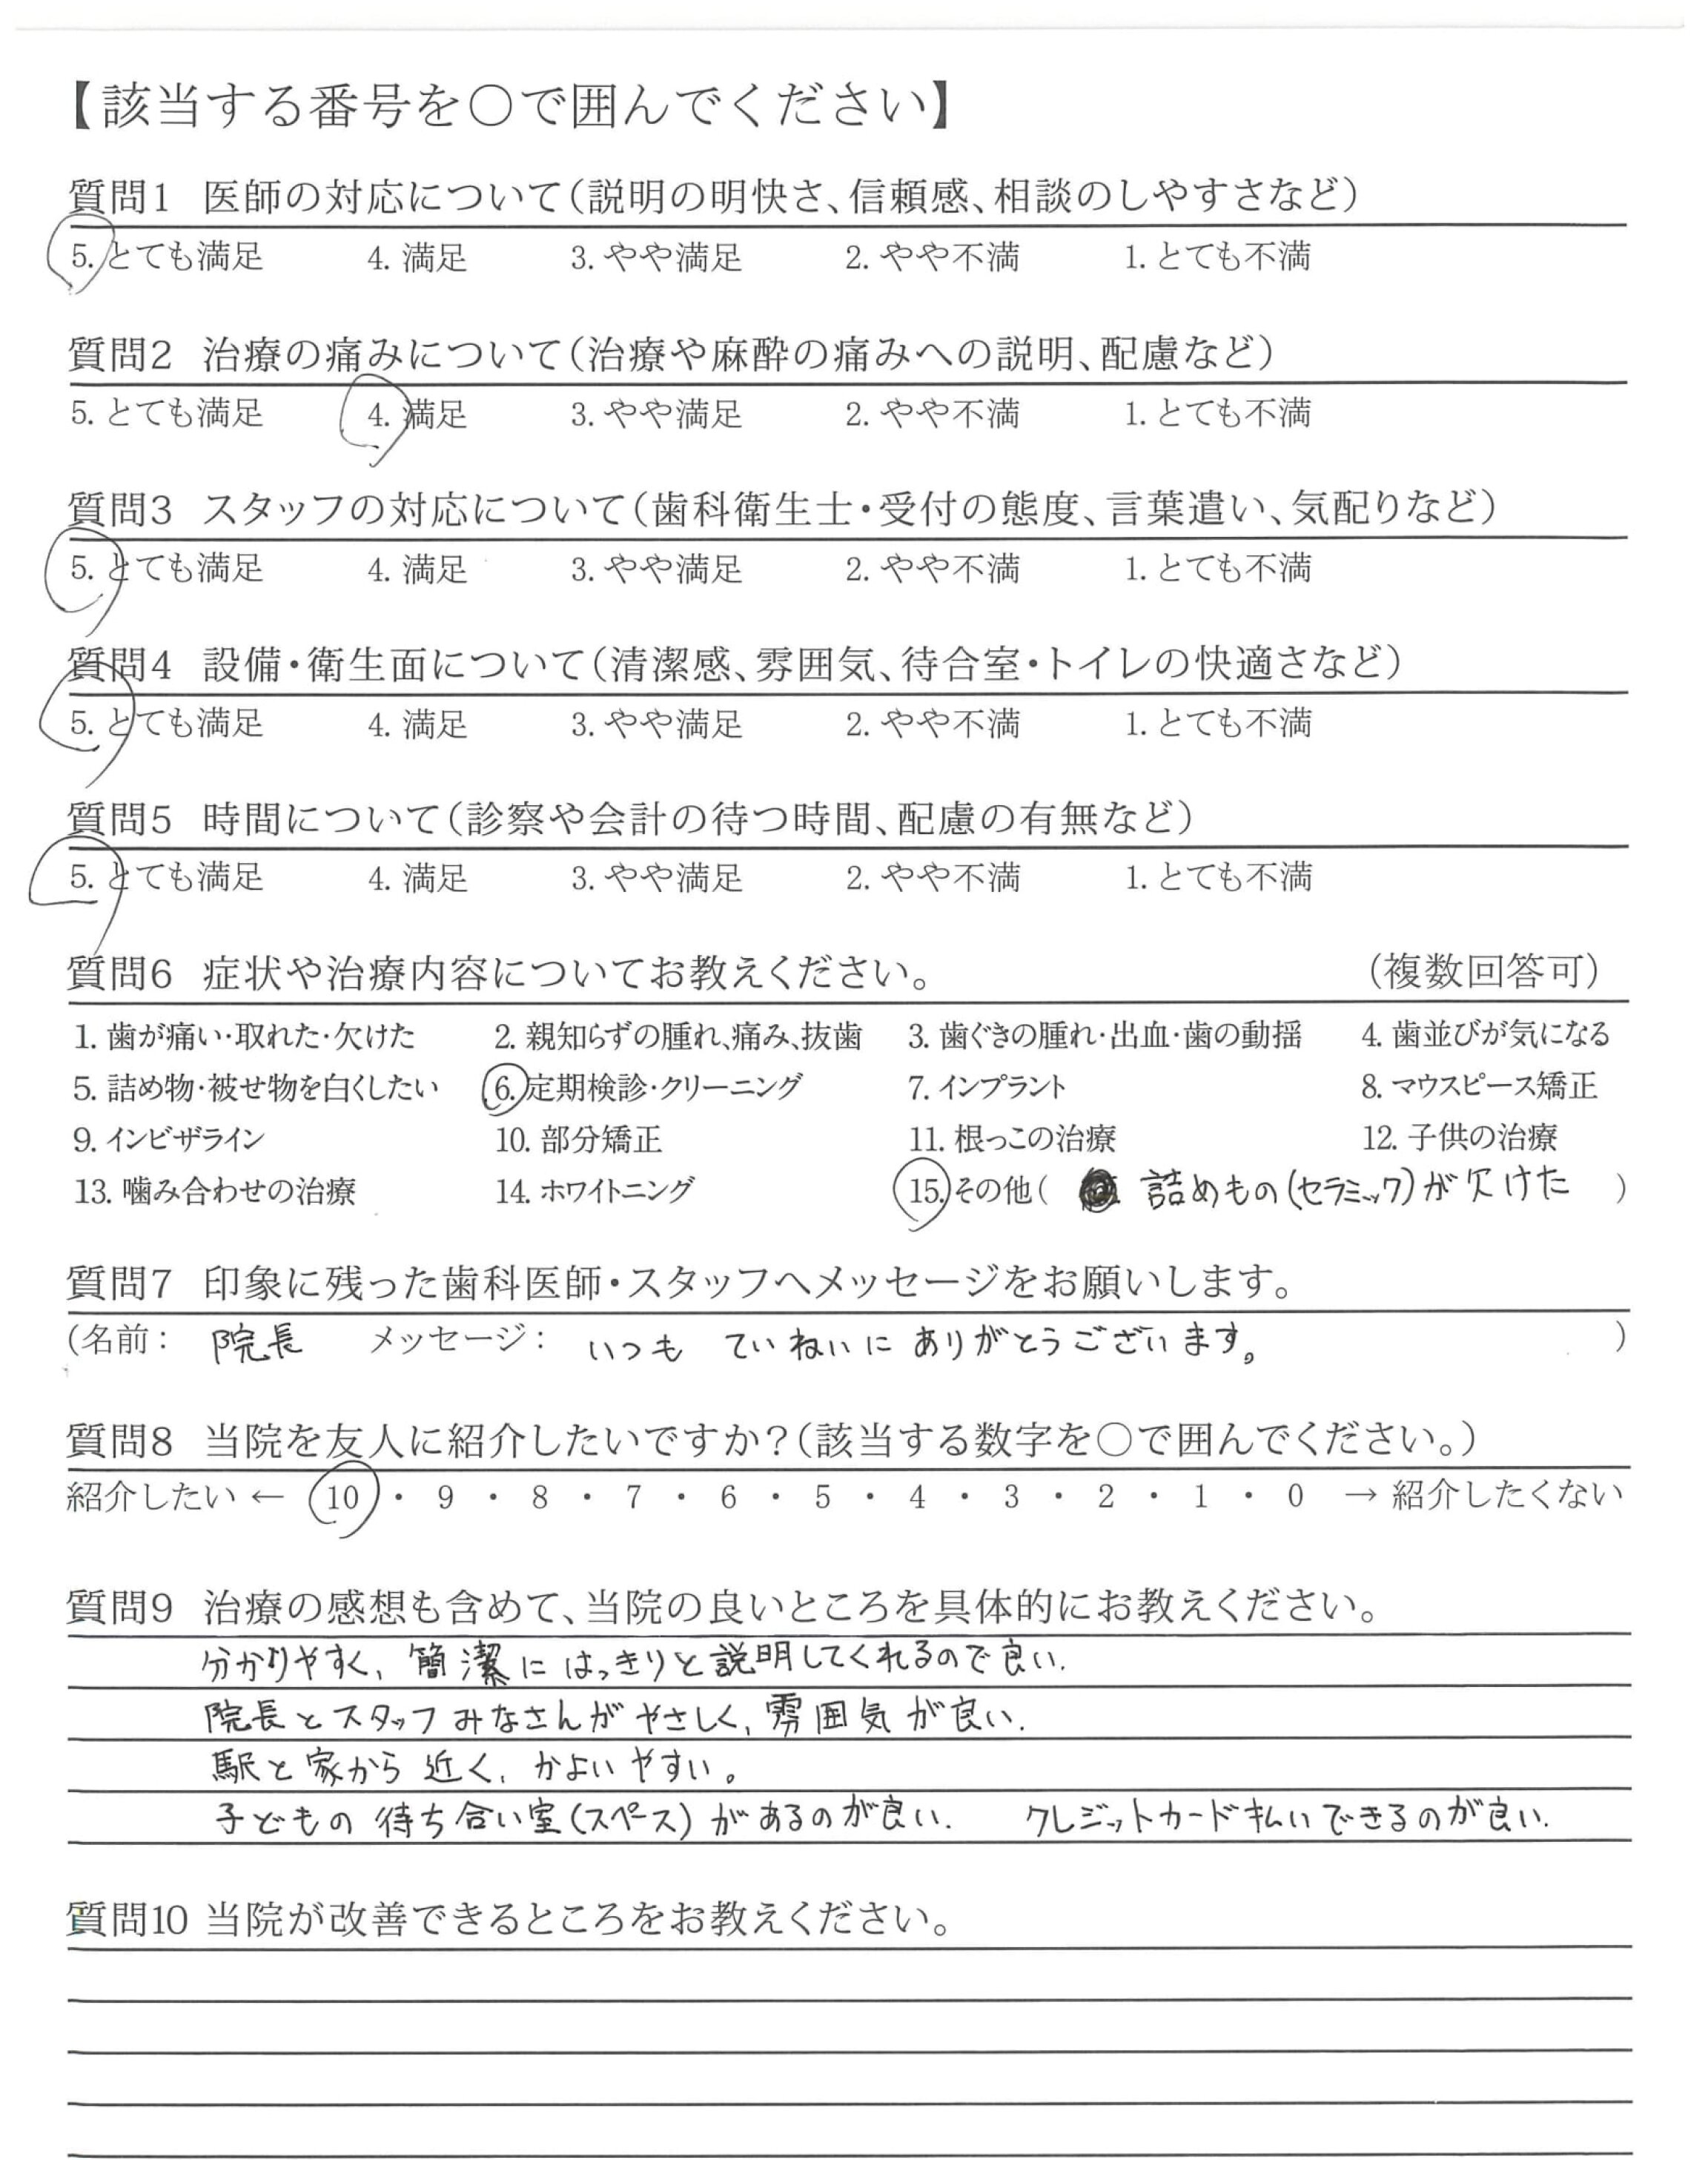 【該当する番号を○で囲んでください】
質問1 医師の対応について(説明の明快さ、信頼感、相談のしやすさなど)
5. とても満足 4. 満足 3. やや満足 2. やや不満 1. とても不満
質問2 治療の痛みについて(治療や麻酔の痛みへの説明、配慮など)
5. とても満足 4. 満足 3. やや満足 2. やや不満 1. とても不満
質問3 スタッフの対応について(歯科衛生士・受付の態度、言葉遣い、気配りなど)
5. とても満足 4. 満足 3. やや満足 2. やや不満 1. とても不満
質問4 設備・衛生面について(清潔感、雰囲気、待合室・トイレの快適さなど)
5. とても満足 4. 満足 3. やや満足 2. やや不満 1. とても不満
質問5 時間について(診察や会計の待つ時間、配慮の有無など)
5. とても満足 4. 満足 3. やや満足 2. やや不満 1. とても不満
質問6 症状や治療内容についてお教えください。 (複数回答可)
1. 歯が痛い・取れた・欠けた 2. 親知らずの腫れ、痛み、抜歯 3. 歯ぐきの腫れ・出血・歯の動揺 4. 歯並びが気になる
5. 詰め物・被せ物を白くしたい 6. 定期検診・クリーニング 7. インプラント 8. マウスピース矯正
9. インビザライン 10. 部分矯正 11. 根っこの治療 12. 子供の治療
13. 噛み合わせの治療 14. ホワイトニング 15. その他( 詰めもの(セラミック)が欠けた )
質問7 印象に残った歯科医師・スタッフへメッセージをお願いします。
(名前: 院長 メッセージ: いつも ていねいに ありがとうございます。 )
質問8 当院を友人に紹介したいですか?(該当する数字を○で囲んでください。)
紹介したい ← 10 ・ 9 ・ 8 ・ 7 ・ 6 ・ 5 ・ 4 ・ 3 ・ 2 ・ 1 ・ 0 → 紹介したくない
質問9 治療の感想も含めて、当院の良いところを具体的にお教えください。
分かりやすく、簡潔にはっきりと説明してくれるので良い.
院長とスタッフみなさんがやさしく、雰囲気が良い.
駅と家から近く、かよいやすい。
子どもの待ち合い室(スペース)があるのが良い. クレジットカード払いできるのが良い.
質問10 当院が改善できるところをお教えください。